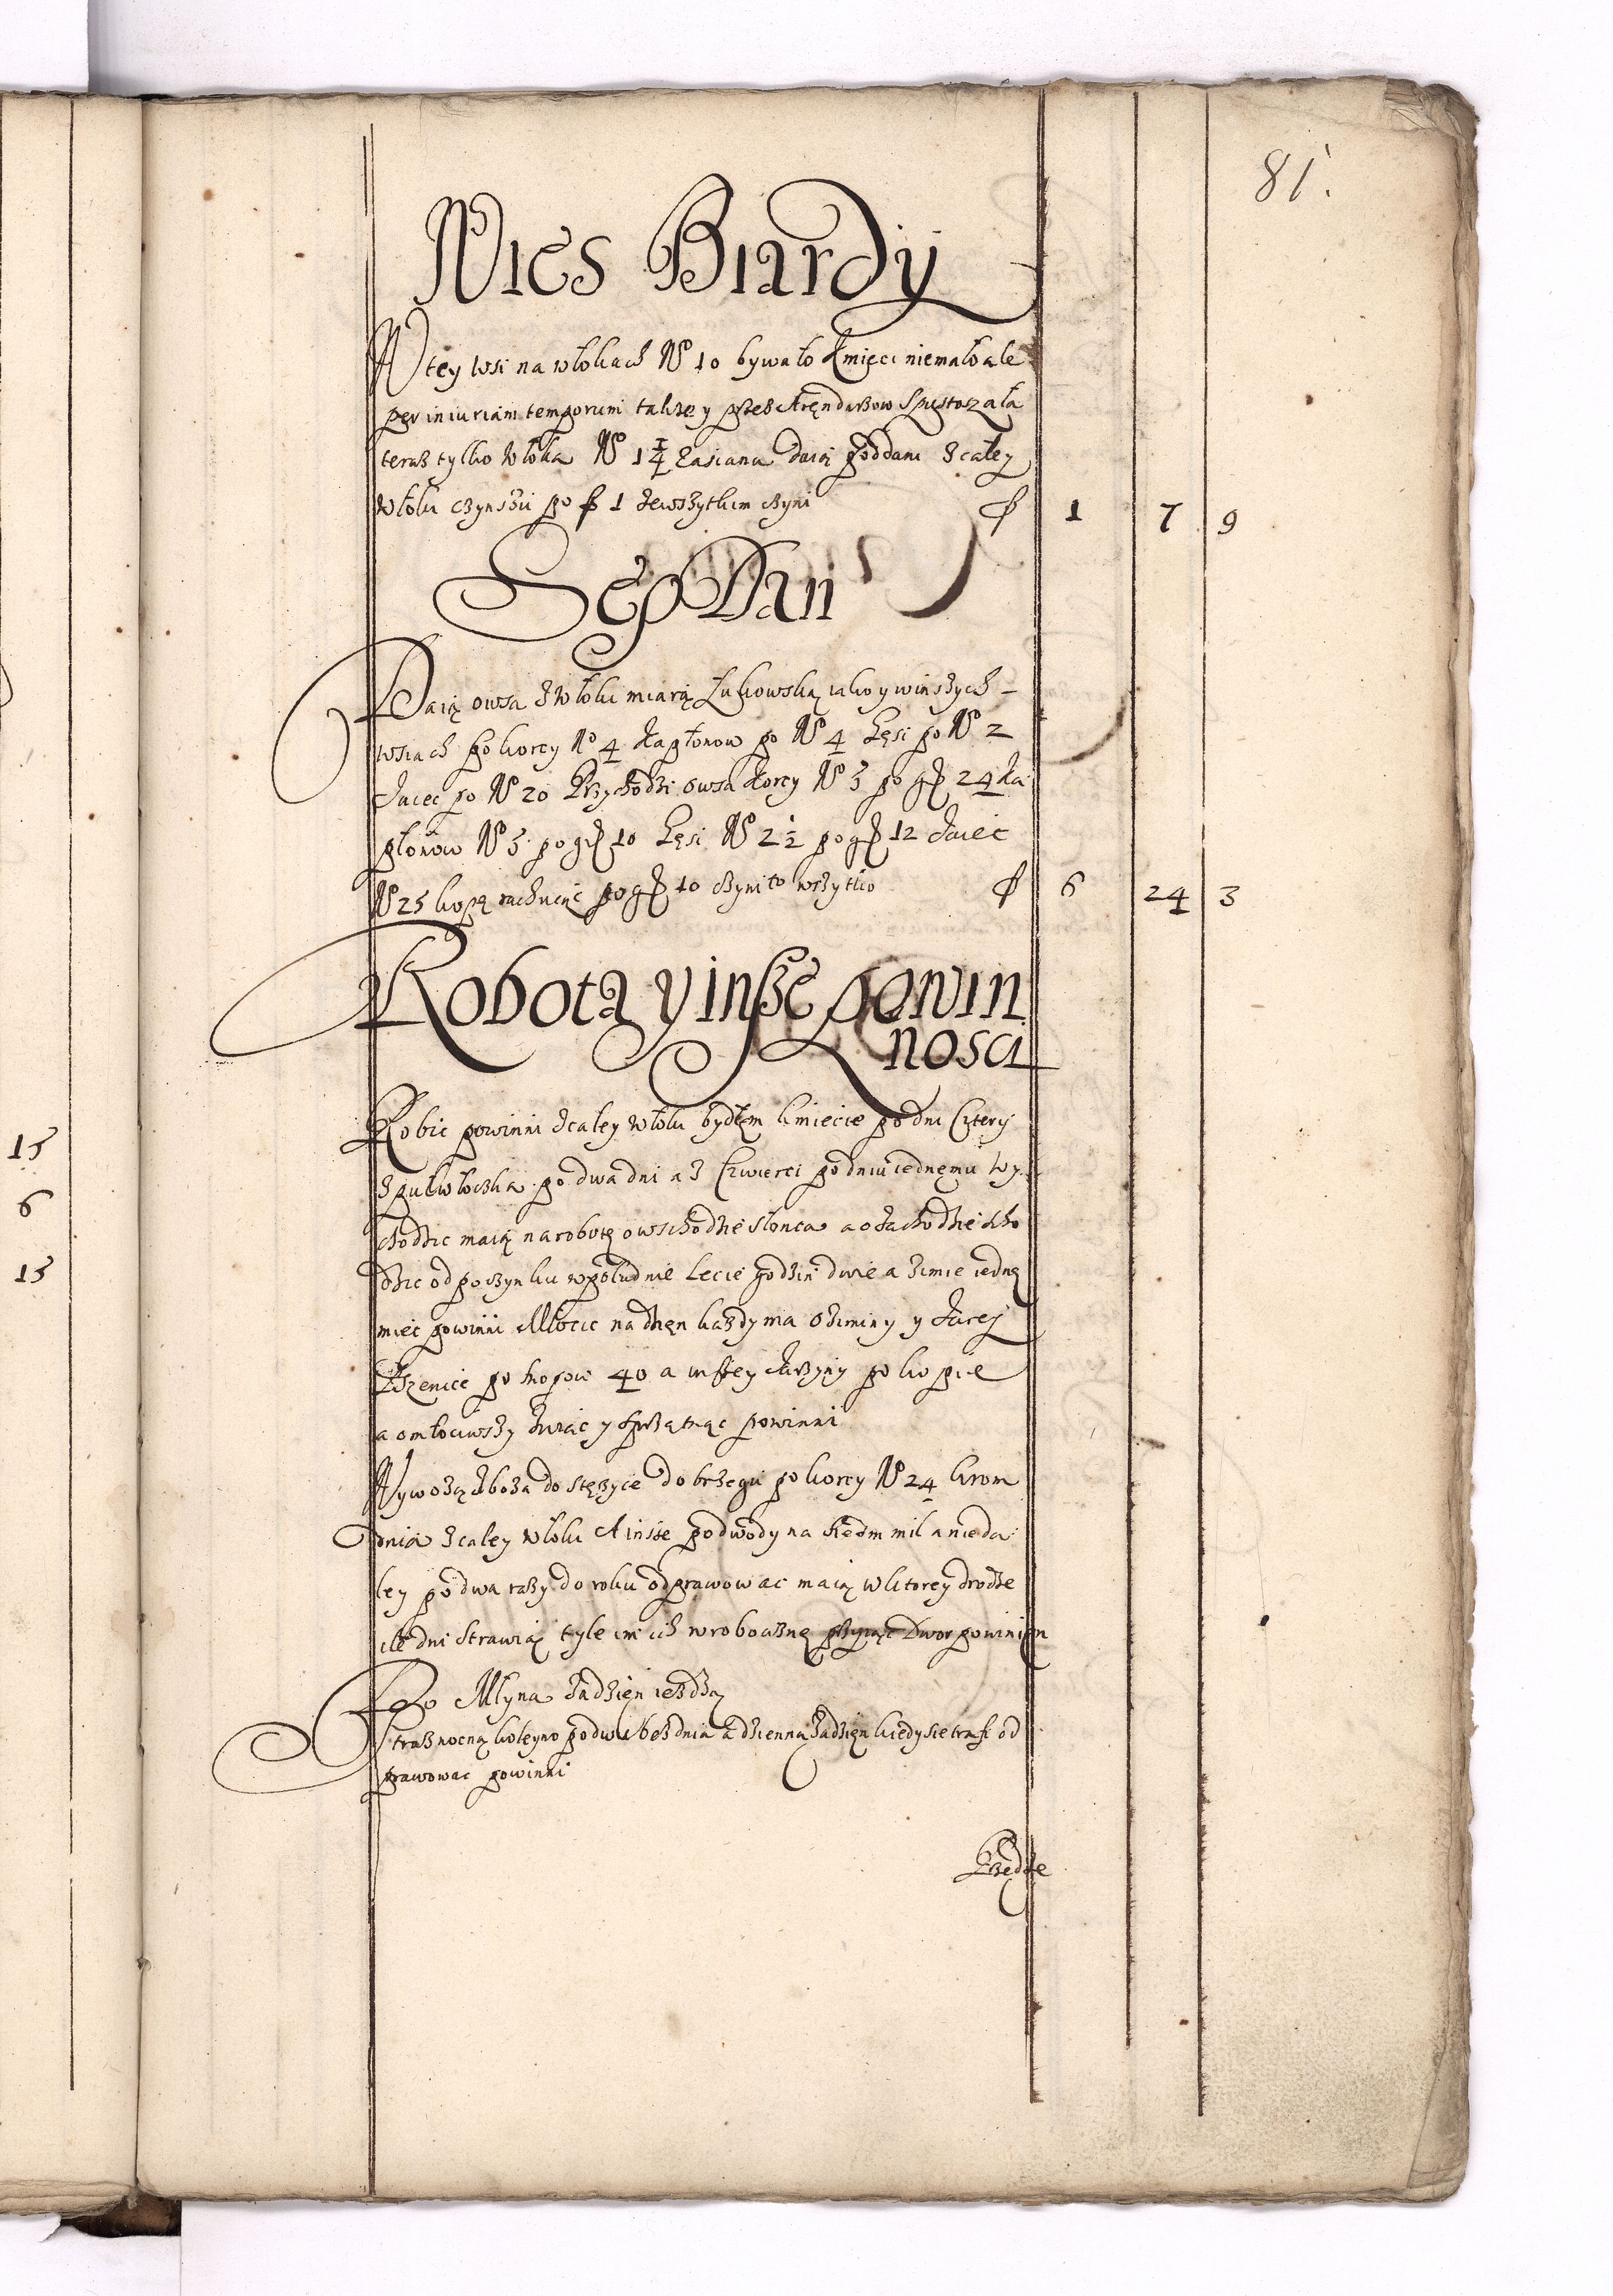 81.
Wies Biardy
W tey wsi na włokach No 10 bywało kmieci niemało ale
per iniuriam temporum takze y przez Aręndarzow Spustoszała
teraz tylko włoka No 1 1/4 zasiana daią poddani z całey
włoki czynszu po f 1 zewszytkim czyni f 1 7 9
Sep Dan
Daią owsa z włoki miarą Łukowską iako y winszych
wsiach po korcy No 4 kapłonow po No 4 Gęsi po No 2
Jaiec po No 20 Przychodzi owsa korcy No 5 po gr 24 ka
płonow No 5 po gr 10 Gęsi No 2 1/2 po gr 12 Jaiec
No 25 kopą rachuiąc po gr 10 czyni to wszytko f 6 24 3
Robota y insze powin
nosci
Robic powinni z całey włoki bydłem kmiecie po dni Cztery
z pułwłoczka po dwa dni a z Czwierci po dniu iednemu wy
chodzic maią na robotę o wschodzie słonca a o zachodzie scho
dzic odpoczynku wpołudnie Lecie godzin dwie a zimie iednę
miec powinni Młocic na dzien kazdy ma oziminy y Jarej
Pszenice po snopow 40 a inszey Jarzyny po kopie
a omłociwszy zwiac y sprzątnąc powinni
Wywozą zboza do Stęzyce do brzegu po korcy No 24 krom
dnia z całey włoki A insze podwody na siedm mil a nieda
ley po dwa razy do roku odprawowac maią w ktorey drodze
ile dni strawią tyle im ich w roboczną przyiąc Dwor powinien
Do Młyna zadzien iezdzą
straz nocną koleyno po dwu bez dnia a dzienną zadzien kiedy sie trafi od
prawowac powinni
Przedze
15
6
15